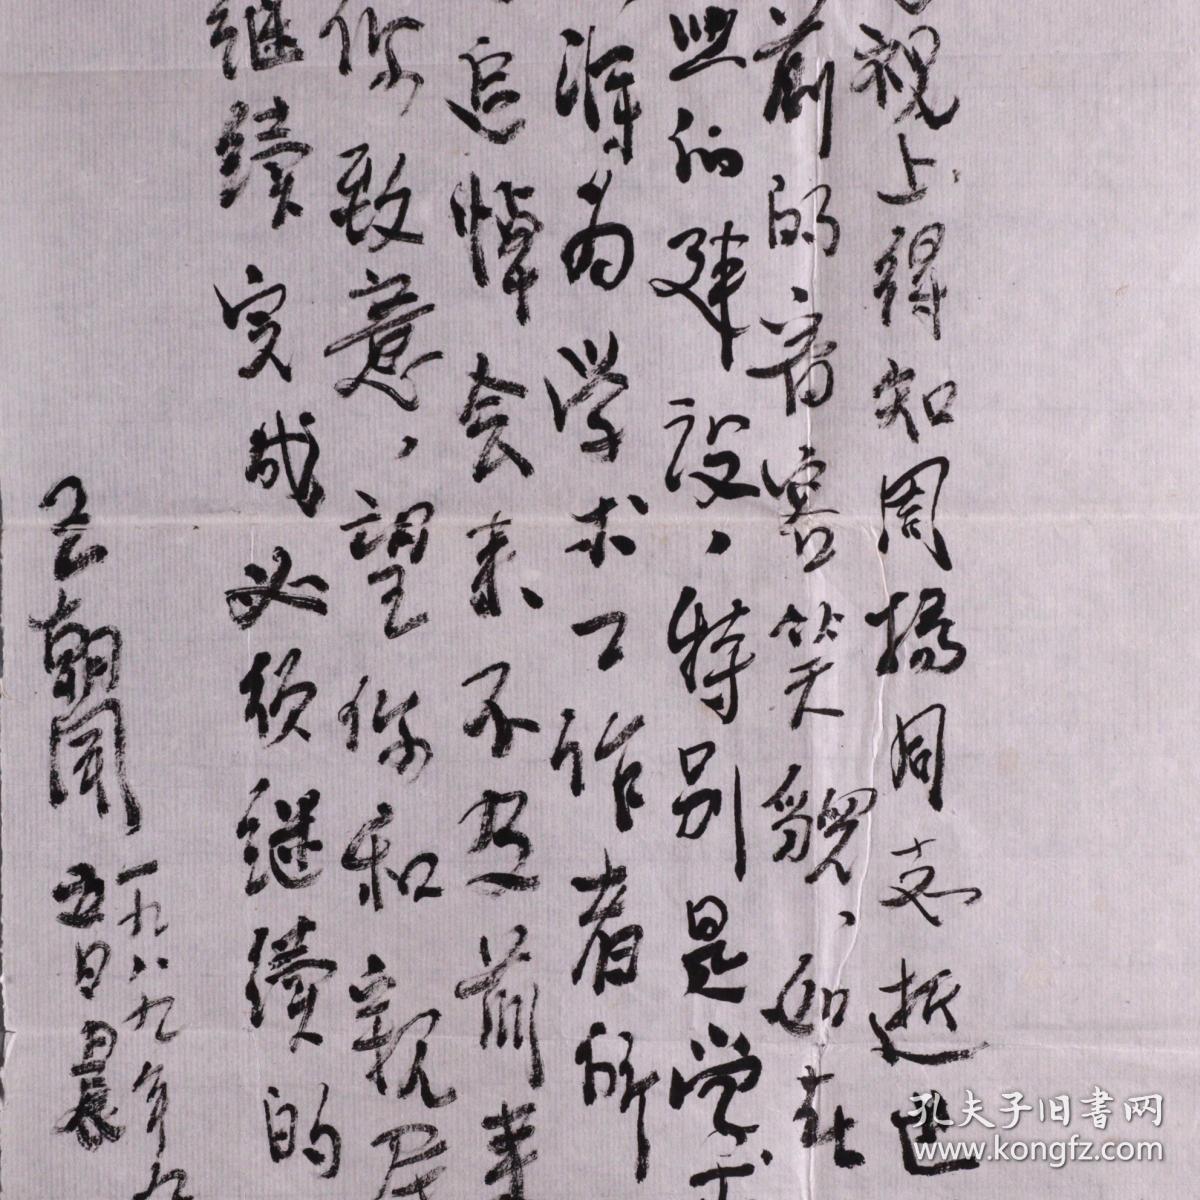 视上得知周扬同志逝世
前的音容笑貌、如在
的建设、特别是学术
得为学术工作者所
追悼会来不及前来
你致意，望你和亲属
继续完成必须继续的
王朝闻
一九八九年九
五日晨
孔夫子旧书网
www.kongfz.com